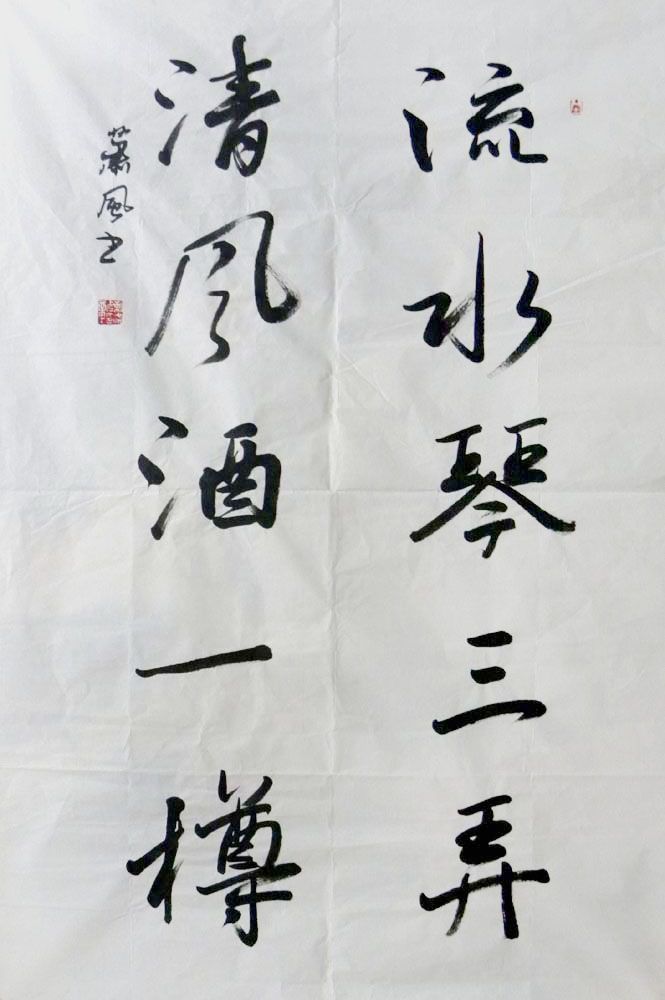 流水琴三弄
清风酒一樽
萧风书